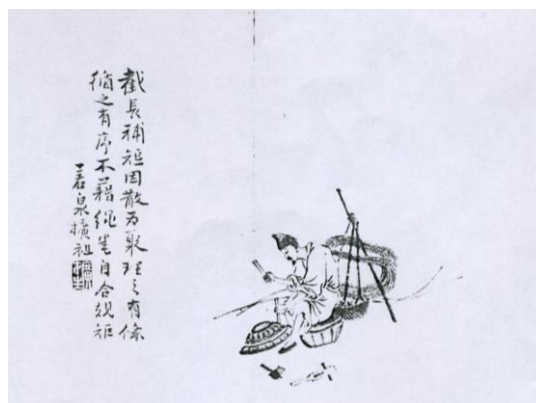 截長補短因散为聚理之有條
循之有序不藉繩墨自合規矩
若泉祖